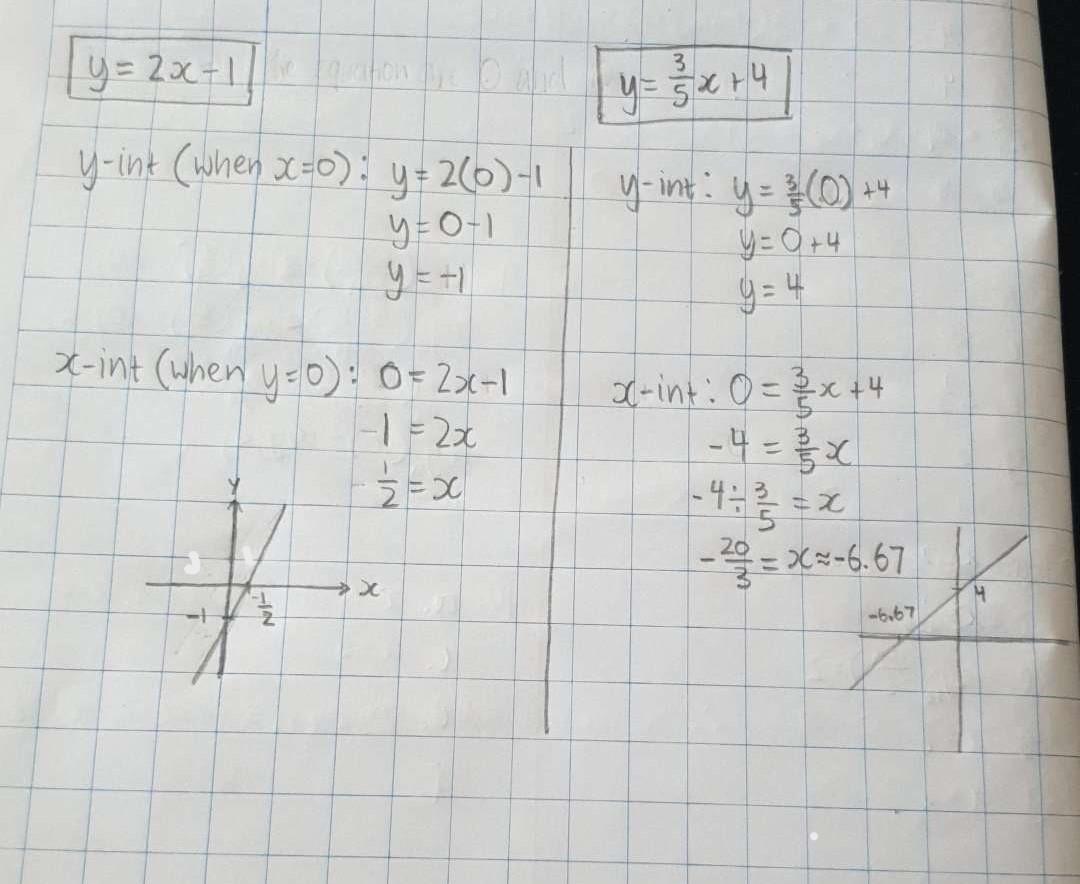 y = 2x - 1
y-int (when x=0): y = 2(0) - 1
y = 0 - 1
y = +1
x-int (when y=0): 0 = 2x - 1
-1 = 2x
1/2 = x
y
x
-1/2
-1
y = 3/5 x + 4
y-int: y = 3/5 (0) + 4
y = 0 + 4
y = 4
x-int: 0 = 3/5 x + 4
-4 = 3/5 x
-4 ÷ 3/5 = x
-20/3 = x ≈ -6.67
4
-6.67